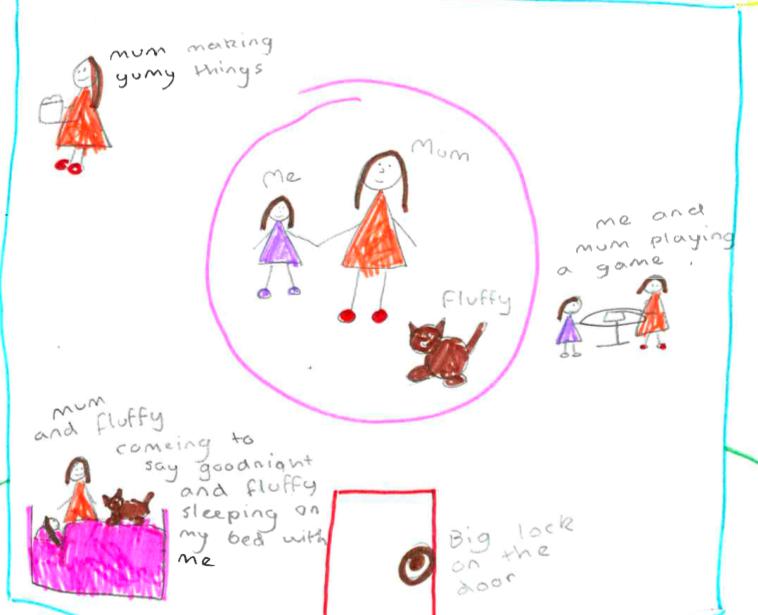 mum making
yumy things
Me
Mum
Fluffy
me and
mum playing
a game.
mum
and fluffy
comeing to
say goodnight
and fluffy
sleeping on
my bed with
me
Big lock
on the
door